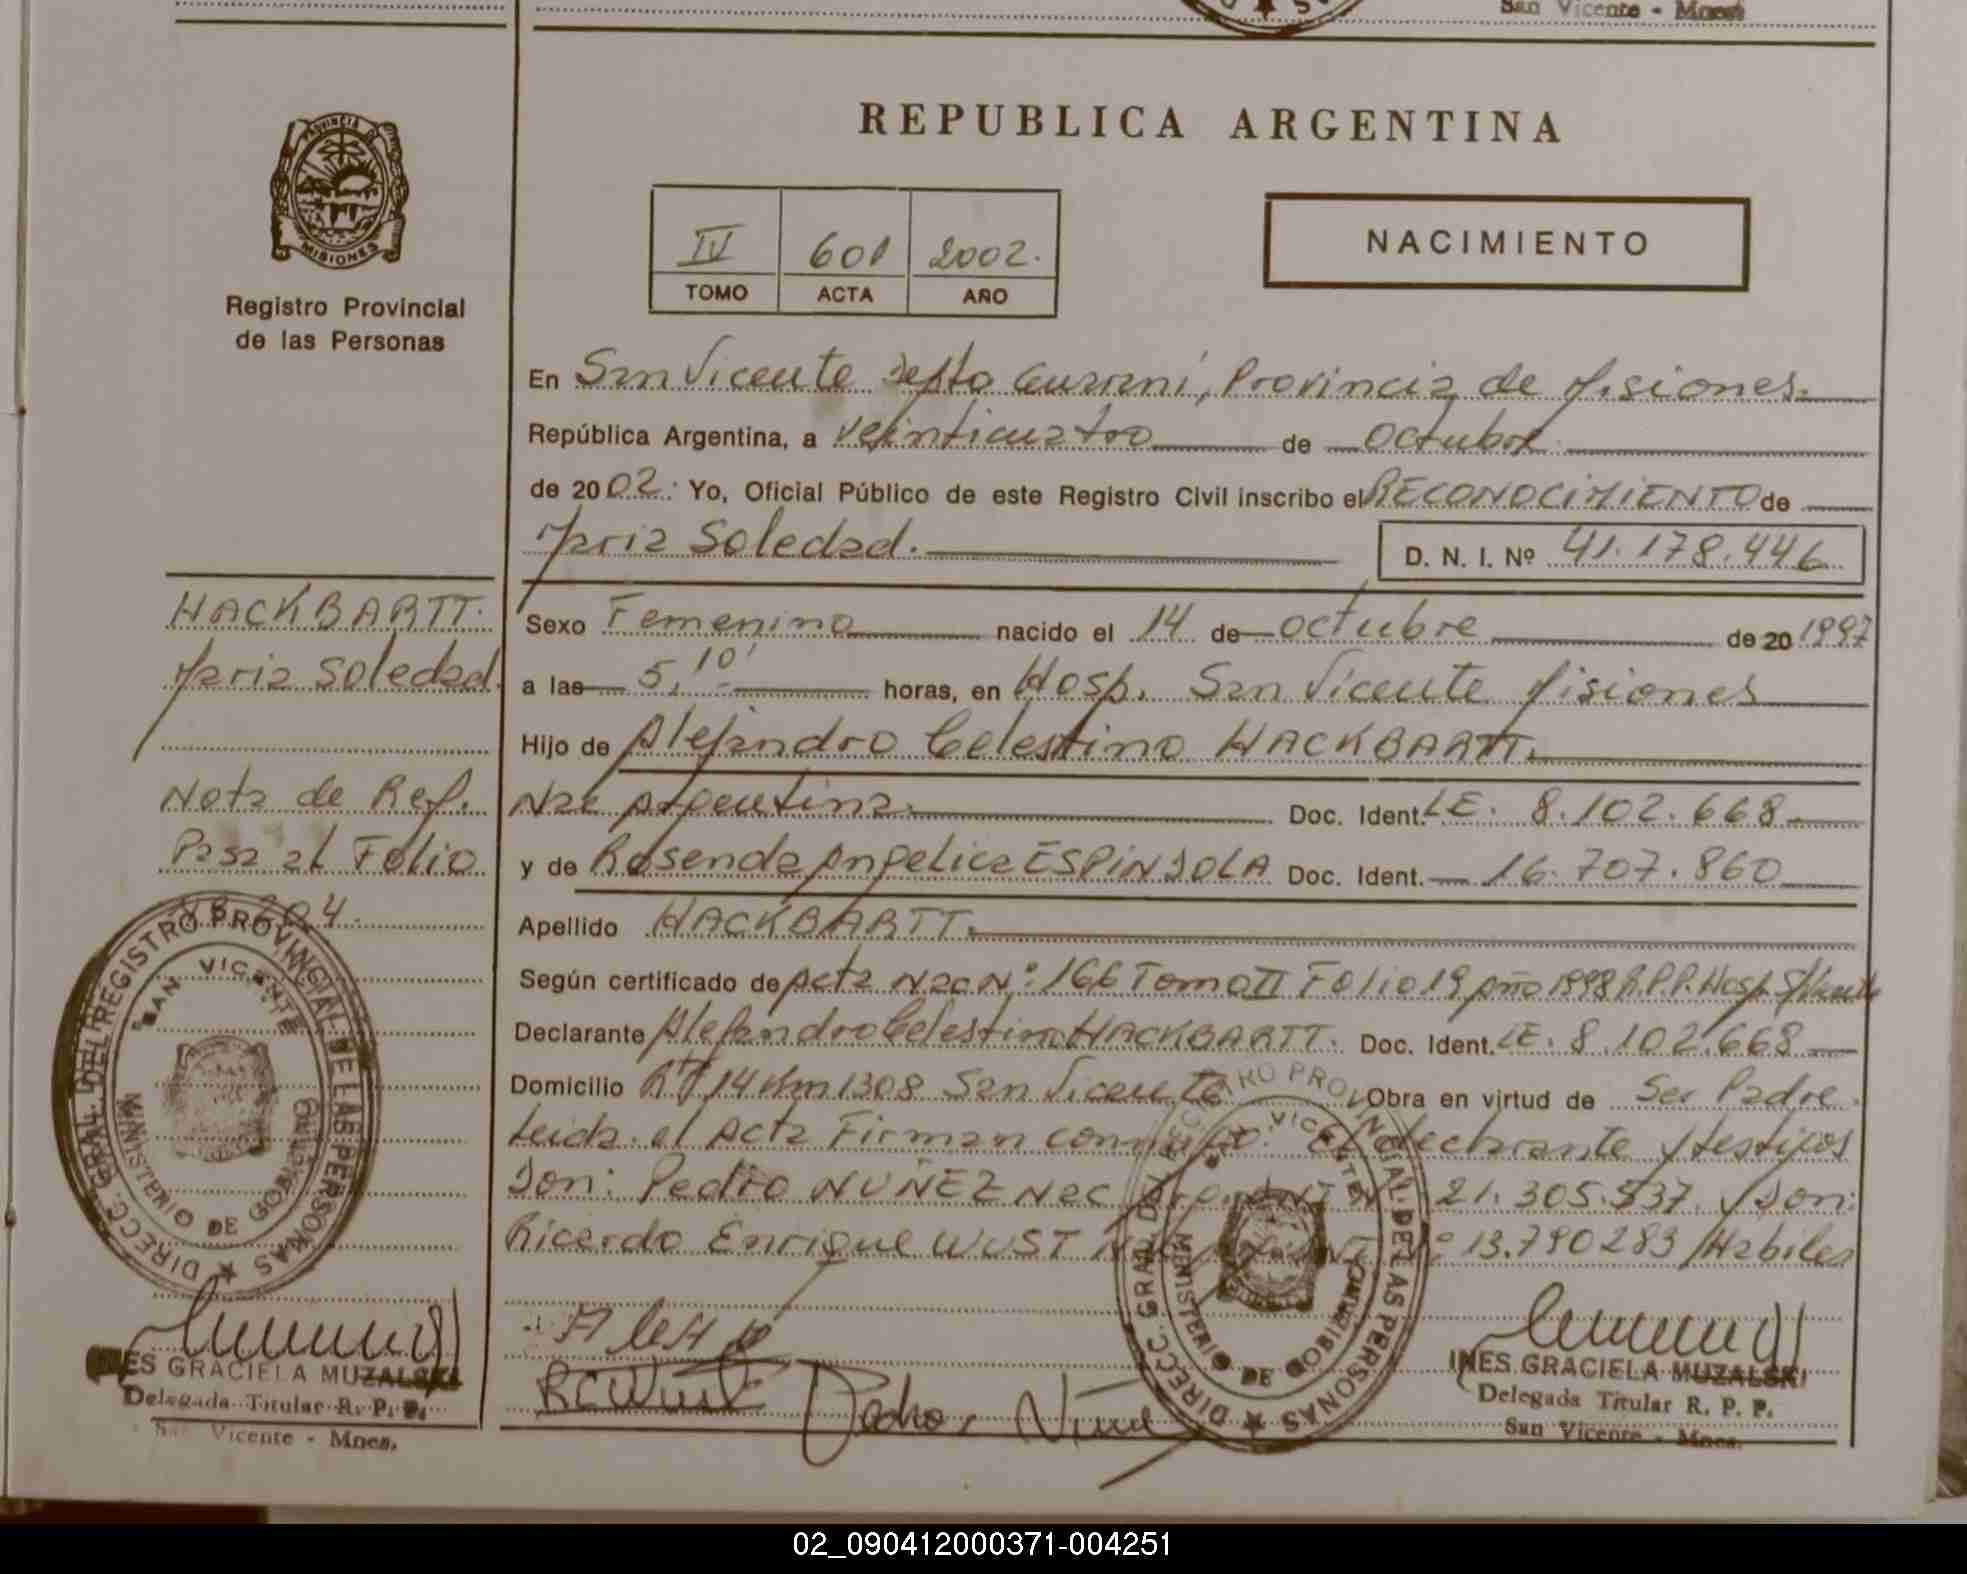 San Vicente - Mnes.
PROVINCIA DE
MISIONES
Registro Provincial
de las Personas
REPUBLICA ARGENTINA
IV 601 2002.
TOMO ACTA AÑO
NACIMIENTO
En San Vicente Depto Guaraní, Provincia de Misiones.
República Argentina, a Veinticuatro de Octubre
de 2002. Yo, Oficial Público de este Registro Civil inscribo el RECONOCIMIENTO de
Maria Soledad. D. N. I. Nº 41.178.446
HACKBARTT.
Maria Soledad.
Nota de Ref.
Pasa al Folio
204.
Sexo Femenino nacido el 14 de octubre de 20 1997
a las 5,10' horas, en Hosp. San Vicente Misiones
Hijo de Alejandro Celestino HACKBARTT.
Nac Argentina. Doc. Ident. LE. 8.102.668
y de Rosenda Angelica ESPINDOLA Doc. Ident. 16.707.860
Apellido HACKBARTT.
Según certificado de Acta Nac Nº: 166 Tomo II Folio 19 año 1998 R.P.P. Hosp. S/Vicente
Declarante Alejandro Celestino HACKBARTT. Doc. Ident. LE. 8.102.668
Domicilio Rta 14 Km 1308 San Vicente Obra en virtud de Ser Padre.
Leida el Acta Firman conmigo: El declarante y testigos
Don: Pedro NUÑEZ Nac Arg. DNI Nº 21.305.537. y Don:
Ricardo Enrique WUST DNI Nº 13.790283 /Habiles
DIRECC. GRAL. DEL REGISTRO PROVINCIAL DE LAS PERSONAS
"SAN VICENTE"
MINISTERIO DE GOBIERNO
DIRECC. GRAL. DEL REGISTRO PROVINCIAL DE LAS PERSONAS
VICENTE
MINISTERIO DE GOBIERNO
RCWust
Pedro Nuñez
INES GRACIELA MUZALSKI
Delegada Titular R. P. P.
San Vicente - Mnes.
INES GRACIELA MUZALSKI
Delegada Titular R. P. P.
San Vicente - Mnes.
02_090412000371-004251